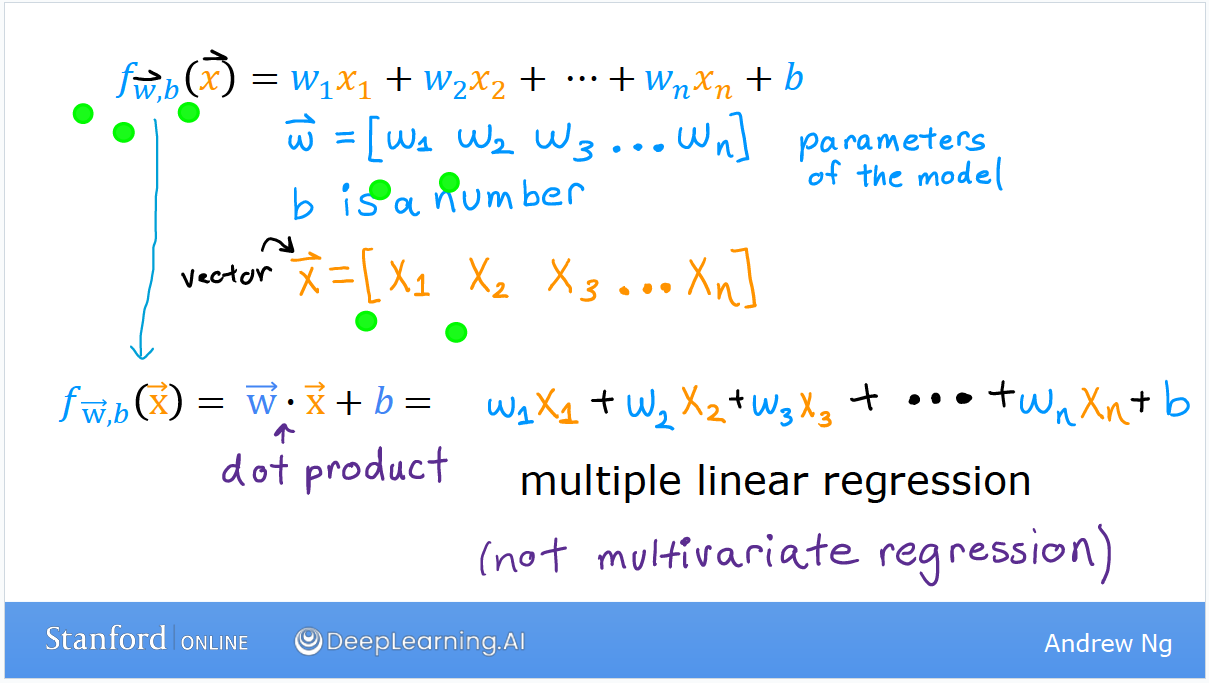 f w⃗,b (x⃗) = w₁x₁ + w₂x₂ + ⋯ + wₙxₙ + b
w⃗ = [w₁ w₂ w₃ ... wₙ] parameters
of the model
b is a number
vector x⃗ = [x₁ x₂ x₃ ... xₙ]
f w⃗,b (x⃗) = w⃗ · x⃗ + b = w₁x₁ + w₂x₂ + w₃x₃ + ••• + wₙxₙ + b
dot product
multiple linear regression
(not multivariate regression)
Stanford ONLINE DeepLearning.AI Andrew Ng